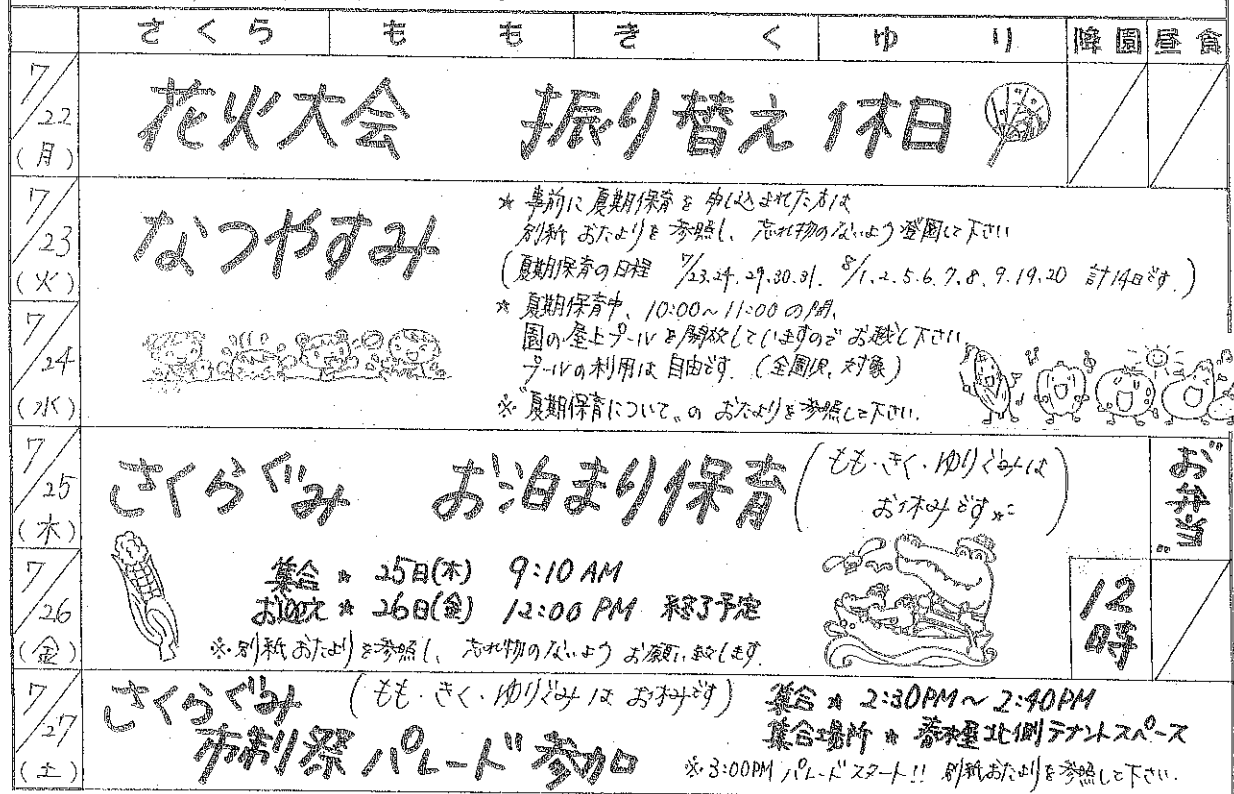 さくら もも きく ゆり 降園 昼食
7/22(月)
花火大会 振り替え休日
7/23(火)
なつやすみ
★ 事前に夏期保育を申し込まれた方は
別紙おたよりを参照し、忘れ物のないよう登園して下さい
(夏期保育の日程 7/23.24.29.30.31. 8/1.2.5.6.7.8.9.19.20 計14日です.)
★ 夏期保育中、10:00~11:00の間、
園の屋上プールを開放していますのでお越し下さい
プールの利用は自由です.(全園児、対象)
※"夏期保育について"のおたよりを参照して下さい.
7/24(水)
7/25(木)
さくらぐみ お泊まり保育
(もも・きく・ゆりぐみは
お休みです
"お弁当"
集合 ★ 25日(木) 9:10 AM
7/26(金)
お迎え ★ 26日(金) 12:00 PM 終了予定
※別紙おたよりを参照し、忘れ物のないようお願い致します.
12時
7/27(土)
さくらぐみ (もも・きく・ゆりぐみはお休みです)
市制祭パレード参加
集合 ★ 2:30PM~2:40PM
集合場所 ★ 北側テナントスペース
※3:00PM パレードスタート!! 別紙おたよりを参照して下さい.